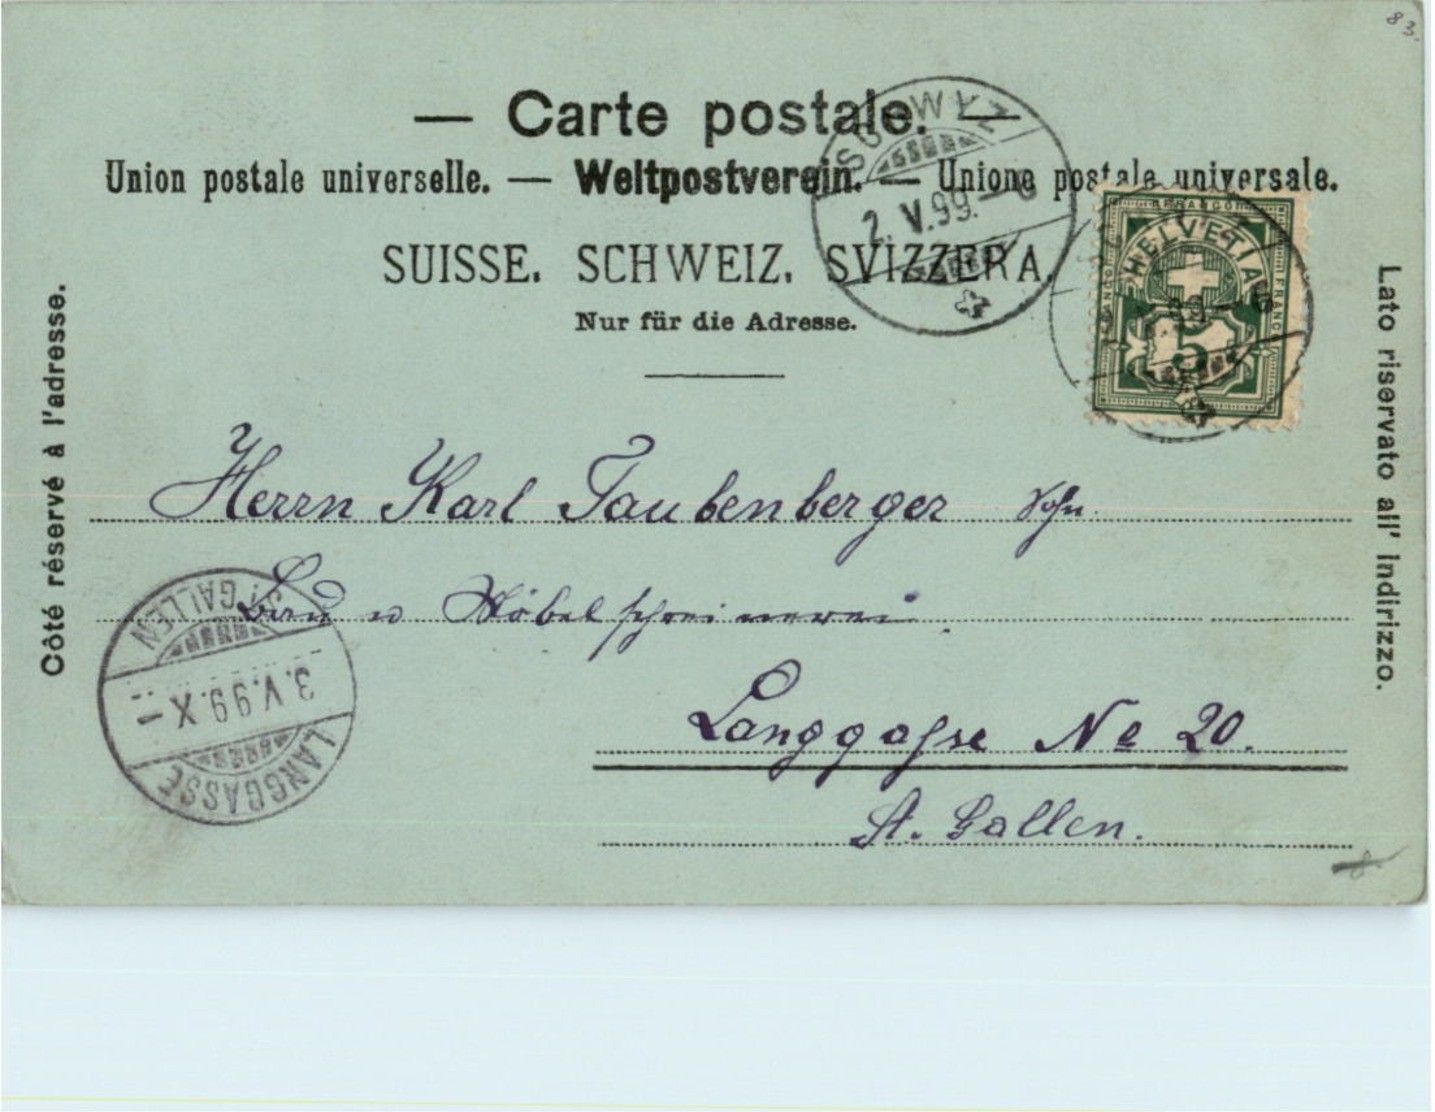 83.
— Carte postale. —
Union postale universelle. — Weltpostverein. — Unione postale universale.
SUISSE. SCHWEIZ. SVIZZERA.
Nur für die Adresse.
SCHWYZ
2. V. 99.
FRANCO
HELVETIA
FRANCO
FRANCO
5
Côté réservé à l'adresse.
Lato riservato all' indirizzo.
Herrn Karl Taubenberger Sohn
Möbelschreinerei.
Langgasse No 20.
St. Gallen.
ST. GALLEN
3. V. 99. X
LANGGASSE